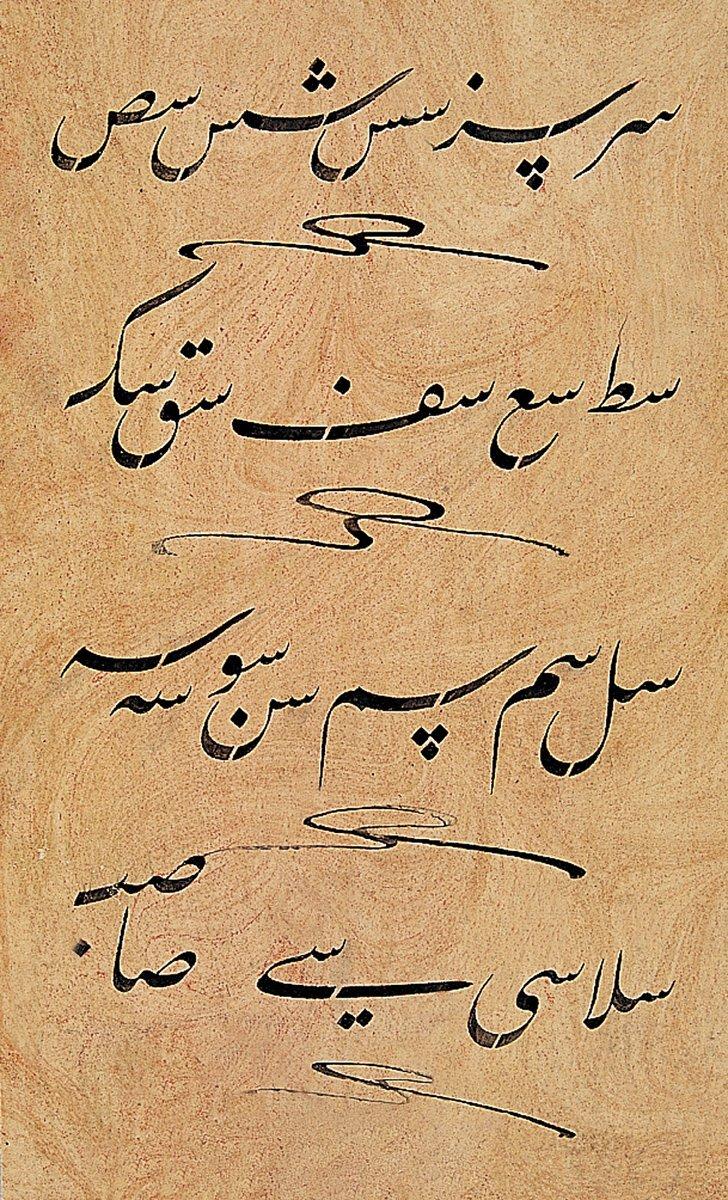 سر سز سس شس سص
سط سع سف سق سک
سل سم سم سن سو سه سه
سلا سی سے صا صد